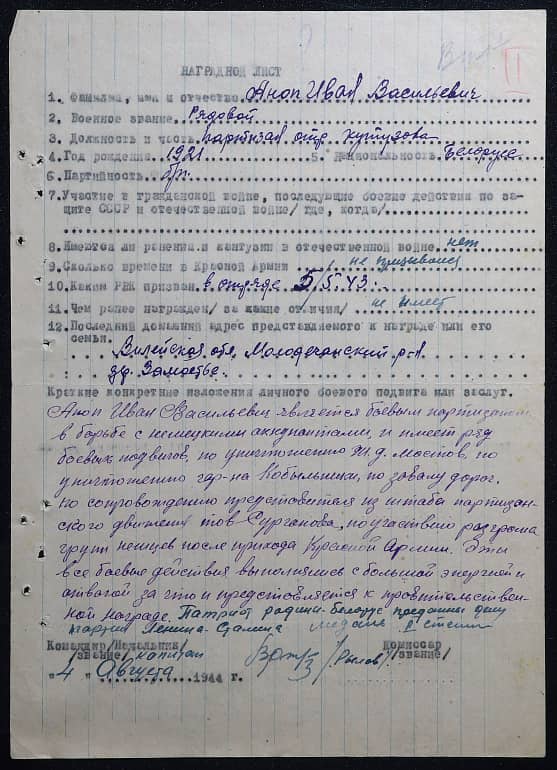 II
НАГРАДНОЙ ЛИСТ
1. Фамилия, имя и отчество Аноп Иван Васильевич
2. Военное звание Рядовой
3. Должность и часть партизан отр. Кутузова
4. Год рождения 1921 5. Национальность Белорус
6. Партийность б/п.
7. Участие в гражданской войне, последующие боевые действия по за-
щите СССР и отечественной войне/ где, когда/
8. Имеются ли ранения и контузии в отечественной войне нет
9. Сколько времени в Красной Армии не призывался
10. Каким РВК призван в отряде 5/5. 43.
11. Чем ранее награжден/ за какие отличия/ не имеет
12. Последний домашний адрес представляемого к награде или его
семьи.
Вилейская обл. Молодечанский р-н
д. Замостье.
Краткие конкретные изложения личного боевого подвига или заслуг.
Аноп Иван Васильевич является боевым партизаном
в борьбе с немецкими оккупантами, и имеет ряд
боевых подвигов, по уничтожению ж.д. мостов, по
уничтожению гар-на Кобыльники, по завалу дорог.
по сопровождению представителя из штаба партизан-
ского движения тов Сурганова, по участвию разгрома
групп немцев после прихода Красной Армии. Эти
все боевые действия выполнялись с большой энергией и
отвагой за что и представляется к правительствен-
ной награде. Патриот родины-Белорус преданный делу
партии Ленина-Сталина медаль II степени
Командир/Начальник/ Комиссар
/звание/ капитан /звание/
"4" Августа 1944 г.